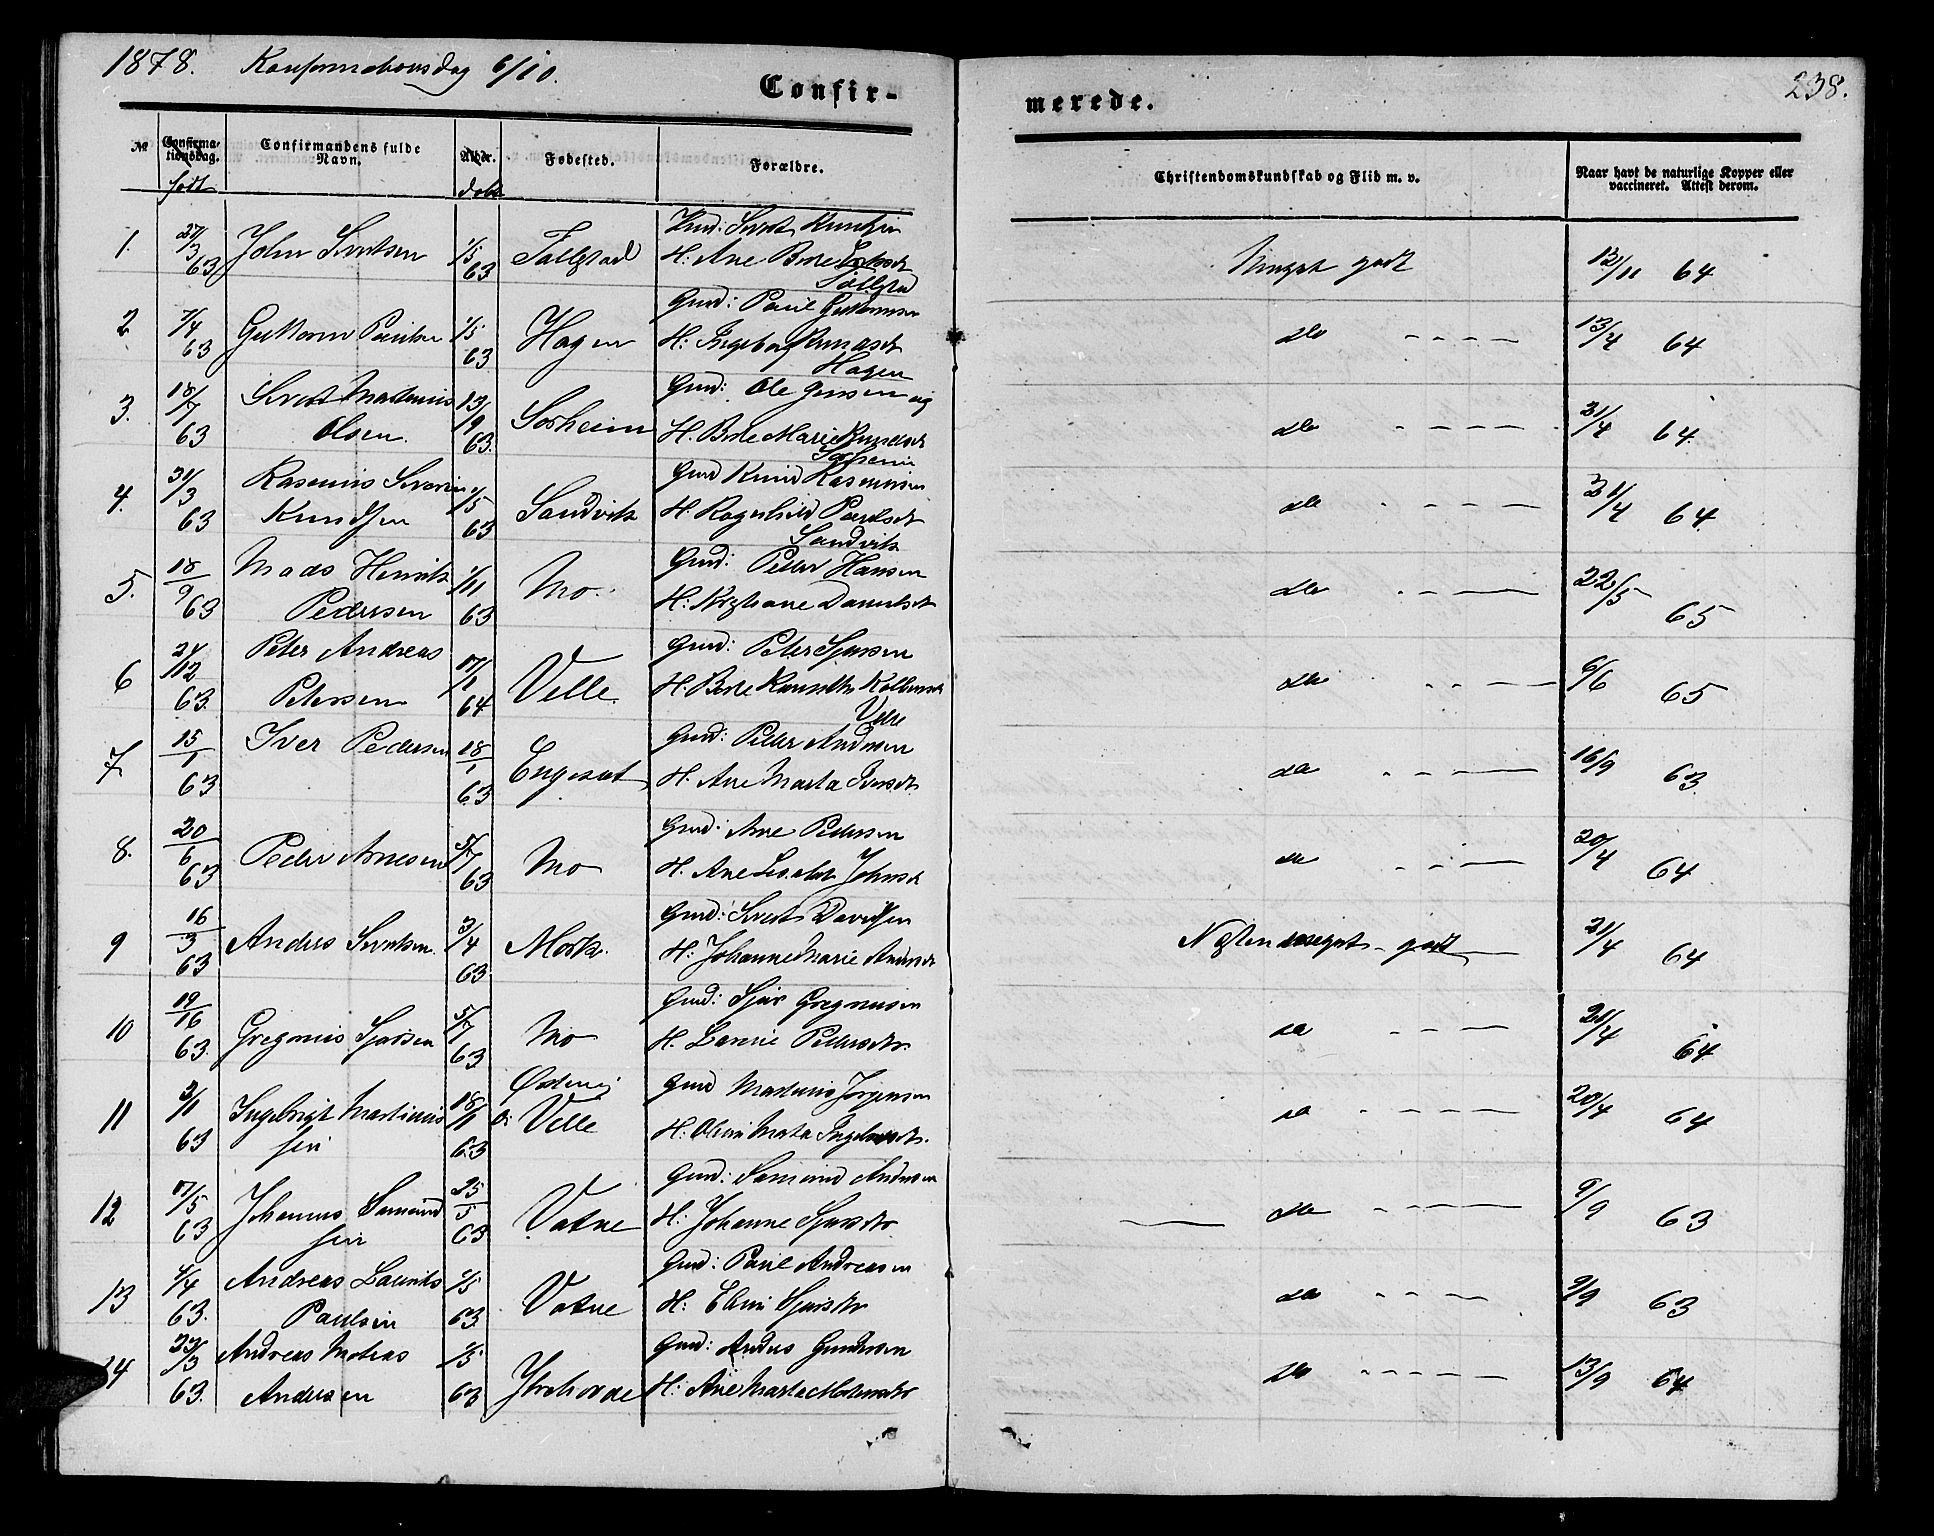 1878. Konfirmationsdag 6/10.
Confir-
merede.
238.
№
Confirma-
tionsdag.
født
Confirmandens fulde
Navn.
Alder.
døbt
Fødested.
Forældre.
Christendomskundskab og Flid m. v.
Naar havt de naturlige Kopper eller
vaccineret. Attest derom.
1. 27/3 63 John Sivertsen 1/5 63
H. Ane
Meget godt 12/11 64
2 7/4 63 Guttorm Paulsen 1/5 63 Hagen
Gmd: Paul Guttormsen
H: Ingeborg
Hagen
do - - - - 13/4 64
3. 18/7 63 Sivert Martinus
Olsen. 13/9 63. Sorheim
Gmd: Ole Jensen og
H. Marie Knudsdt
Sorheim
do - - - - 21/4 64.
4. 31/3 63 Rasmus Severin
Knudsen 1/5 63 Sandvik
Gmd Knud Rasmussen
H. Ragnhild Paulsdt
Sandvik
do - - - 21/4 64.
5. 18/9 63 Mads Henrik
Pedersen 1/11 63 Mo.
Gmd: Peder Hansen
H: Danielsdt
do - - - 22/5 65
6 24/12 63. Peter Andreas
Petersen 17/1 64 Velle.
Gmd: Peter Sjursen
H:
Velle
do - - - 6/6 65
7 15/1 63 Iver Pedersen 18/1 63 Engeset
Gmd: Peder Andersen
H. Ane Marta Iversdt.
do - - - 16/9 63.
8. 20/6 63 Peder Arnesen 5/7 63 Mo
Gmd: Arne Pedersen
H. Ane Johnsdt
do - - - 20/4 64
9 16/3 63 Anders Sivertsen. 3/4 63 Mork.
Gmd: Sivert Davidsen
H: Johanne Marie Andersdt
Næsten meget godt 21/4 64
10 19/16 63. Gregorius Sjursen 5/7 63 Mo
Gmd: Sjur Gregorius​sen
H. Pedersdtr.
do - - - 21/4 64
11 2/11 63 Ingebrigt Martinus
sen 18/11 63 Velle
Gmd Martinus Jørgensen
H: Marta
do - - - 20/4 64
12 17/5 63 Johannes Samund
sen 25/5 63 Vatne
Gmd: Samund Andersen
H: Johanne Sjursdtr.
do - - - 9/9 63
13 4/4 63. Andreas Laurits
Paulsen 1/5 63. Vatne
Gmd: Paul Andreasen
H: Sjursdtr
do - - - 9/9 63
14 22/3 63. Andreas Mateas
Andersen 1/5 63
Gmd: Anders Gundersen
H: Ane Marta
do - - - 13/9 64